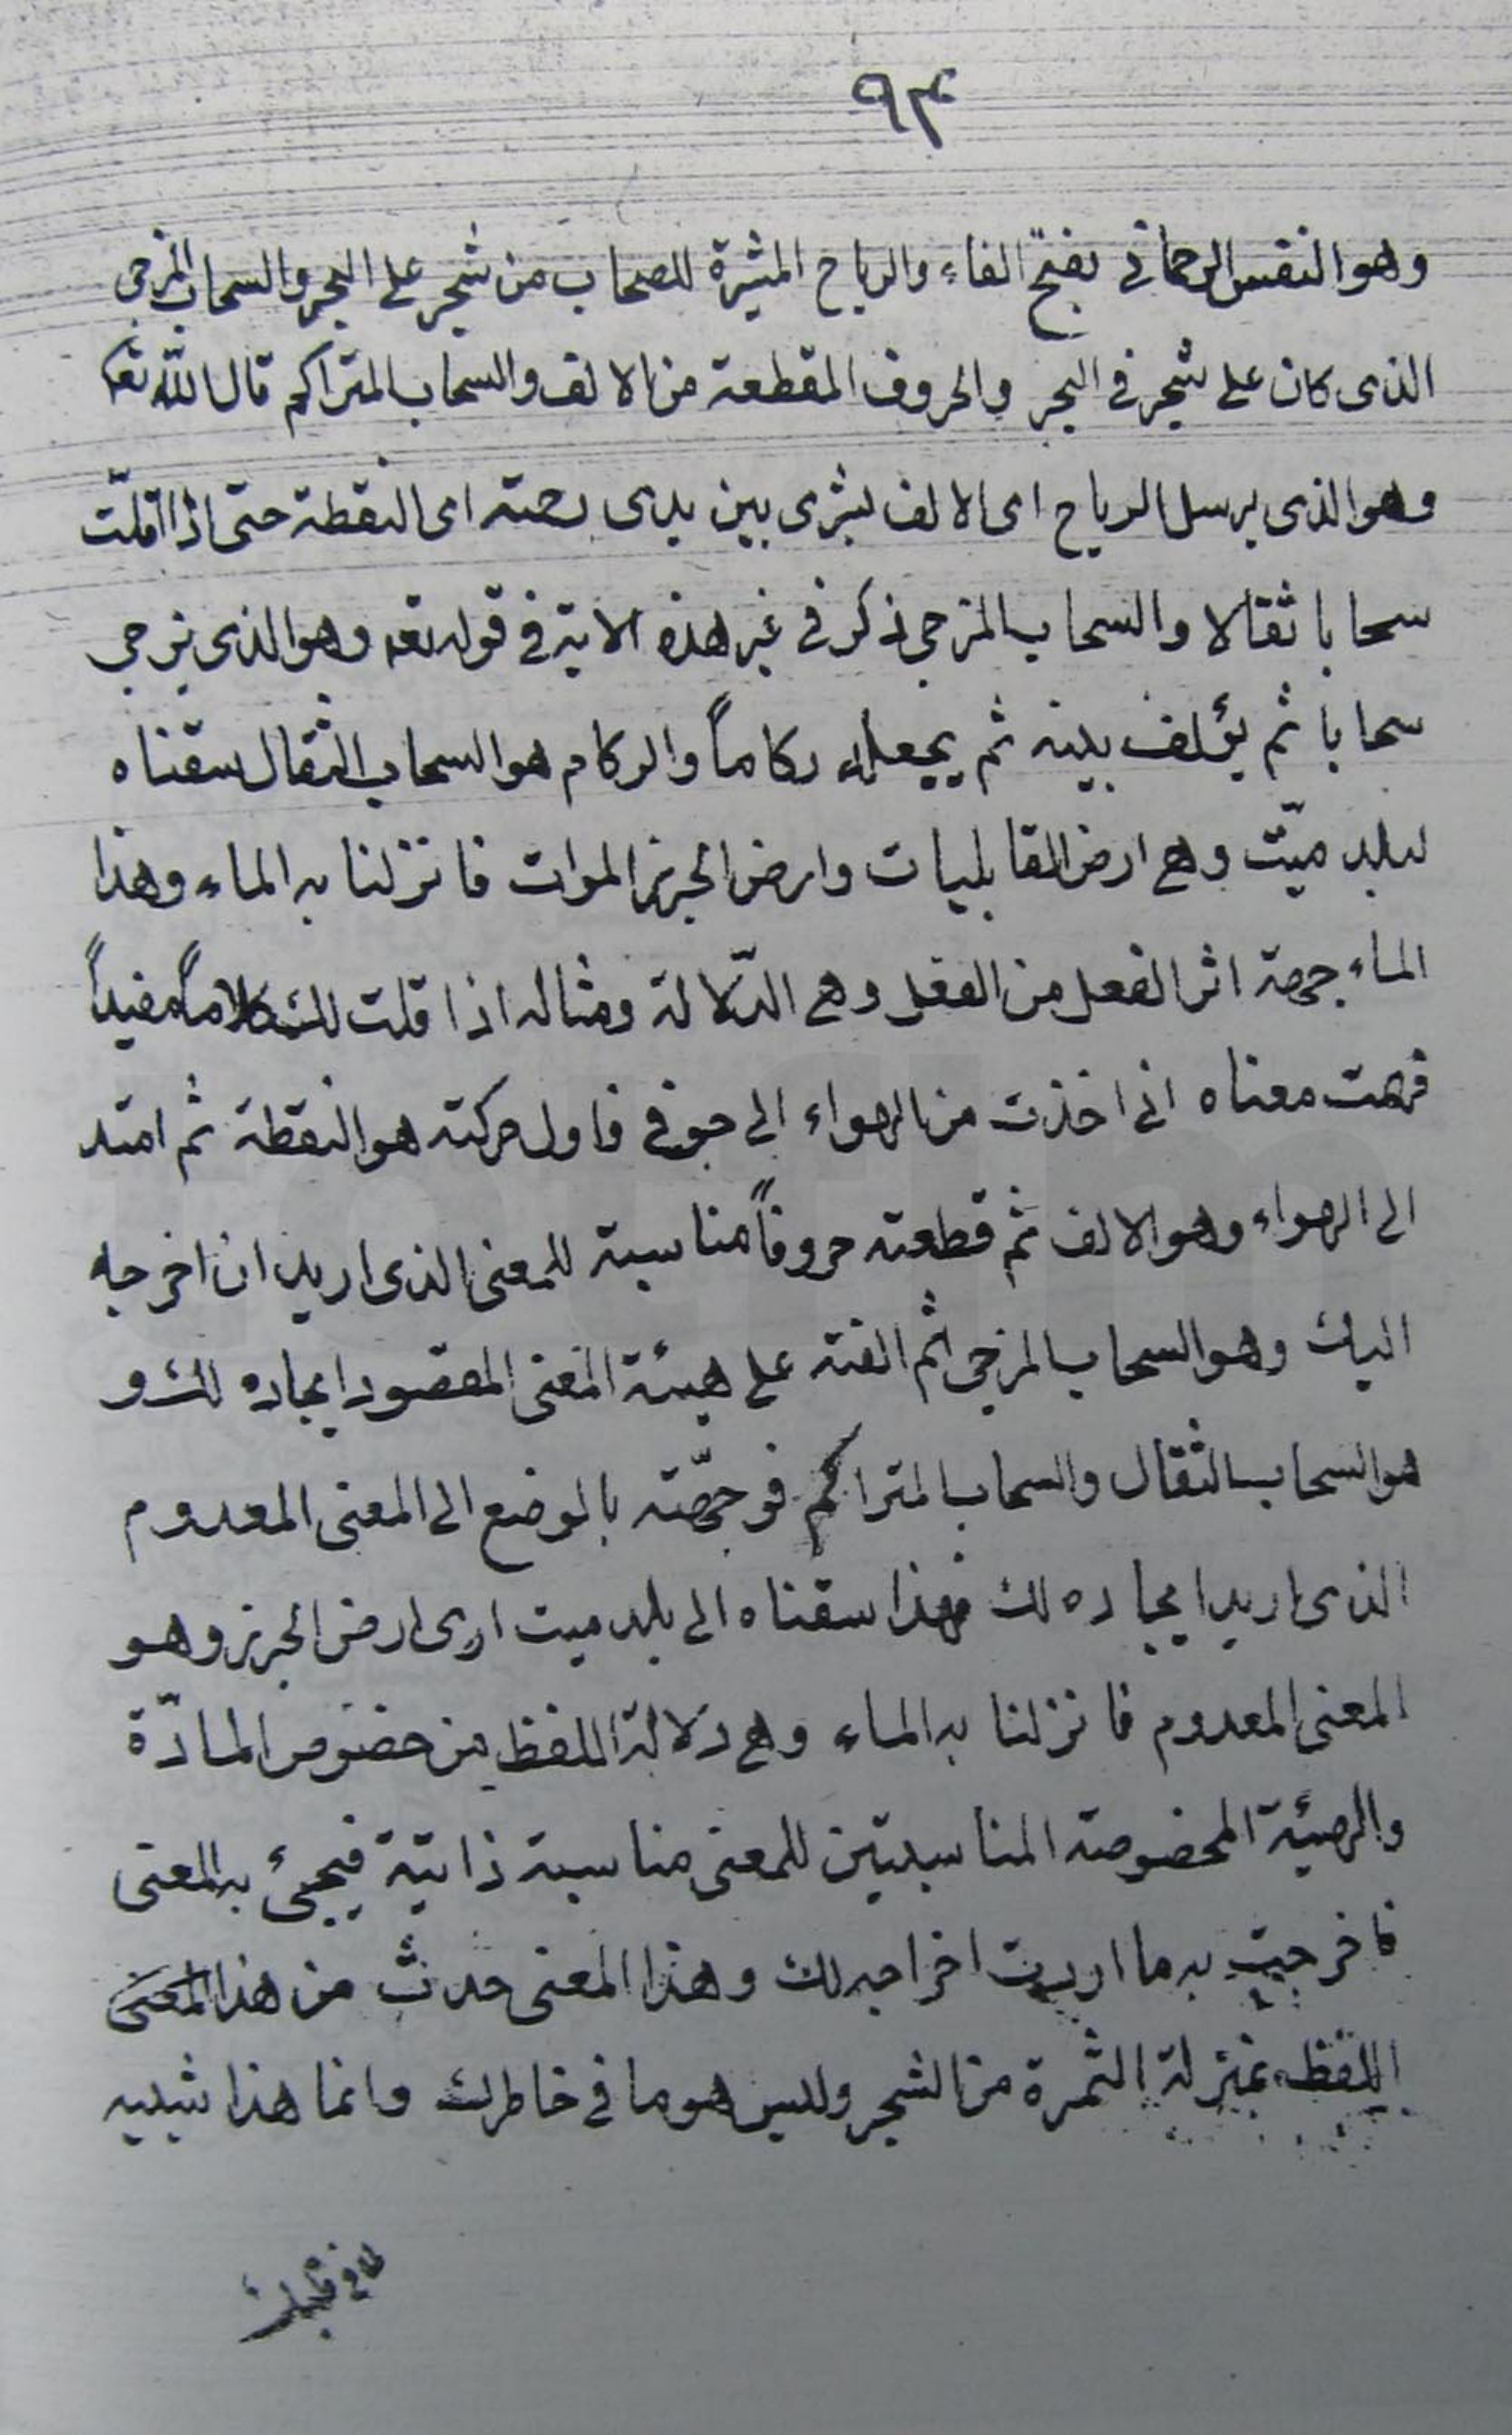 ٩٣
وهو النفس الرحماني بفتح الفاء والرياح المثيرة للصحاب من شجر على البحر والسحاب المزجى
الذى كان على شجر فى البحر والحروف المقطعة من الالف والسحاب المتراكم قال الله تعه
وهو الذى يرسل الرياح اى الالف بشرى بين يدى رحمته اى النقطة حتى اذا اقلّت
سحابا ثقالا والسحاب المزجى ذكر فى غير هذه الاية فى قوله تعه وهو الذى يزجى
سحابا ثم يؤلف بينه ثم يجعله ركاماً والركام هو السحاب الثقال سقناه
لبلد ميّت وهى ارض القابليات وارض الجرز الموات فانزلنا به الماء وهذا
الماء جهة اثر الفعل من الفعل وهى الدّلالة ومثاله اذا قلت لك كلاماً مفيداً
فهمت معناه انى اخذت من الهواء الى جوفى فاول حركته هو النقطة ثم امتد
الى الهواء وهو الالف ثم قطعته حروفاً مناسبة للمعنى الذى اريد ان اخرجه
اليك وهو السحاب المزجى ثم الفته على هيئة المعنى المقصود ايجاده لك و
هو السحاب الثقال والسحاب المتراكم فوجّهته بالوضع الى المعنى المعدوم
الذى اريد ايجاده لك فهذا سقناه الى بلد ميت اى ارض الجرز وهو
المعنى المعدوم فانزلنا به الماء وهى دلالة اللفظ من خضوص المادّة
والهيئة المخصوصة المناسبتين للمعنى مناسبة ذاتية فيجئ به المعنى
فاخرجت به ما اردت اخراجه لك وهذا المعنى حدث من هذا المعنى
اللفظ بمنزلة الثمرة من الشجر وليس هو ما فى خاطرك وانما هذا شبيه